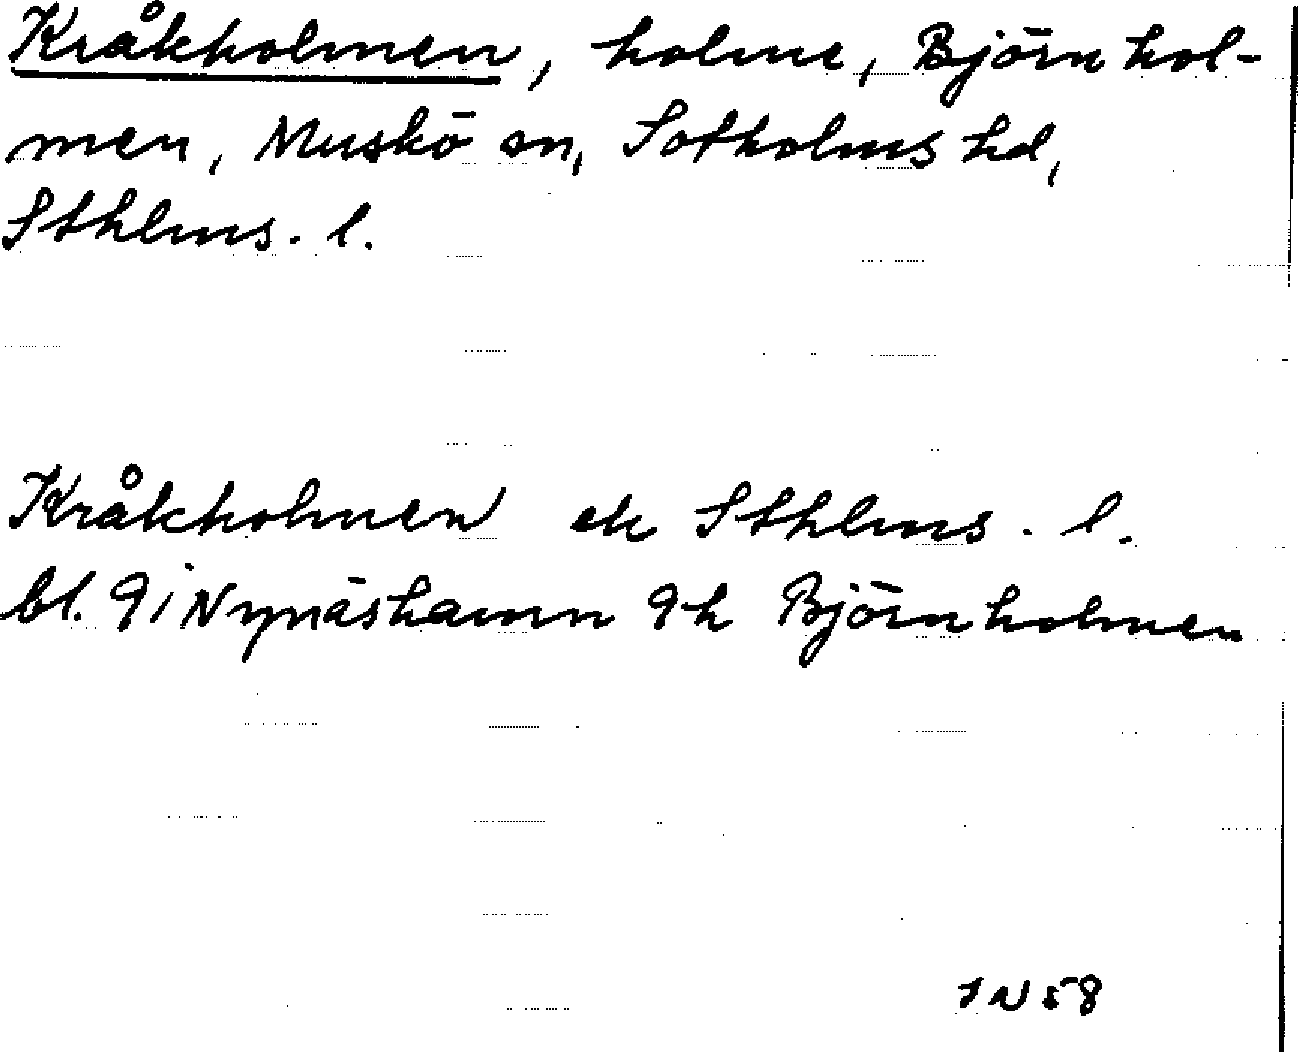 Kråkholmen, holme, Björnhol-
men, Muskö sn, Sotholms hd,
Sthlms. l.
Kråkholmen ek Sthlms. l.
bl. 9i Nynäshamn 9h Björnholmen
IN 58